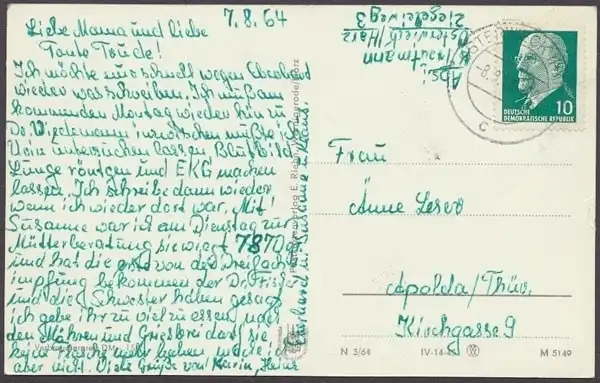 7.8.64
Liebe Mama und liebe
Tante Trude!
Ich möchte nur schnell wegen Eberhard
wieder was schreiben. Ich muß am
kommenden Montag wieder hin zu
Dr. Wiedemann inzwischen mußte ich
Urin untersuchen lassen, Blutbild
Lunge röntgen und EKG machen
lassen. Ich schreibe dann wieder
wenn ich wieder dort war. Mit
Susanne war ich am Dienstag zur
Mütterberatung sie wiegt 7870g
und hat die erste von der Dreifach
impfung bekommen der Dr.
und die Schwester haben gesagt
ich gebe ihr zu viel zu essen, nach
den Möhren und Griesbrei darf sie
keine Flasche mehr haben
aber nicht. Viele Grüße von Karin, Heinz
Eberhard u. Susanne
Abs.:
Trautmann
Osterwieck/Harz
Ziegeleiweg 3
OSTERWIECK
DEUTSCHE
DEMOKRATISCHE REPUBLIK
10
Frau
Anne Leser
Apolda/Thür.
Kirchgasse 9
N 3/64
M 5149